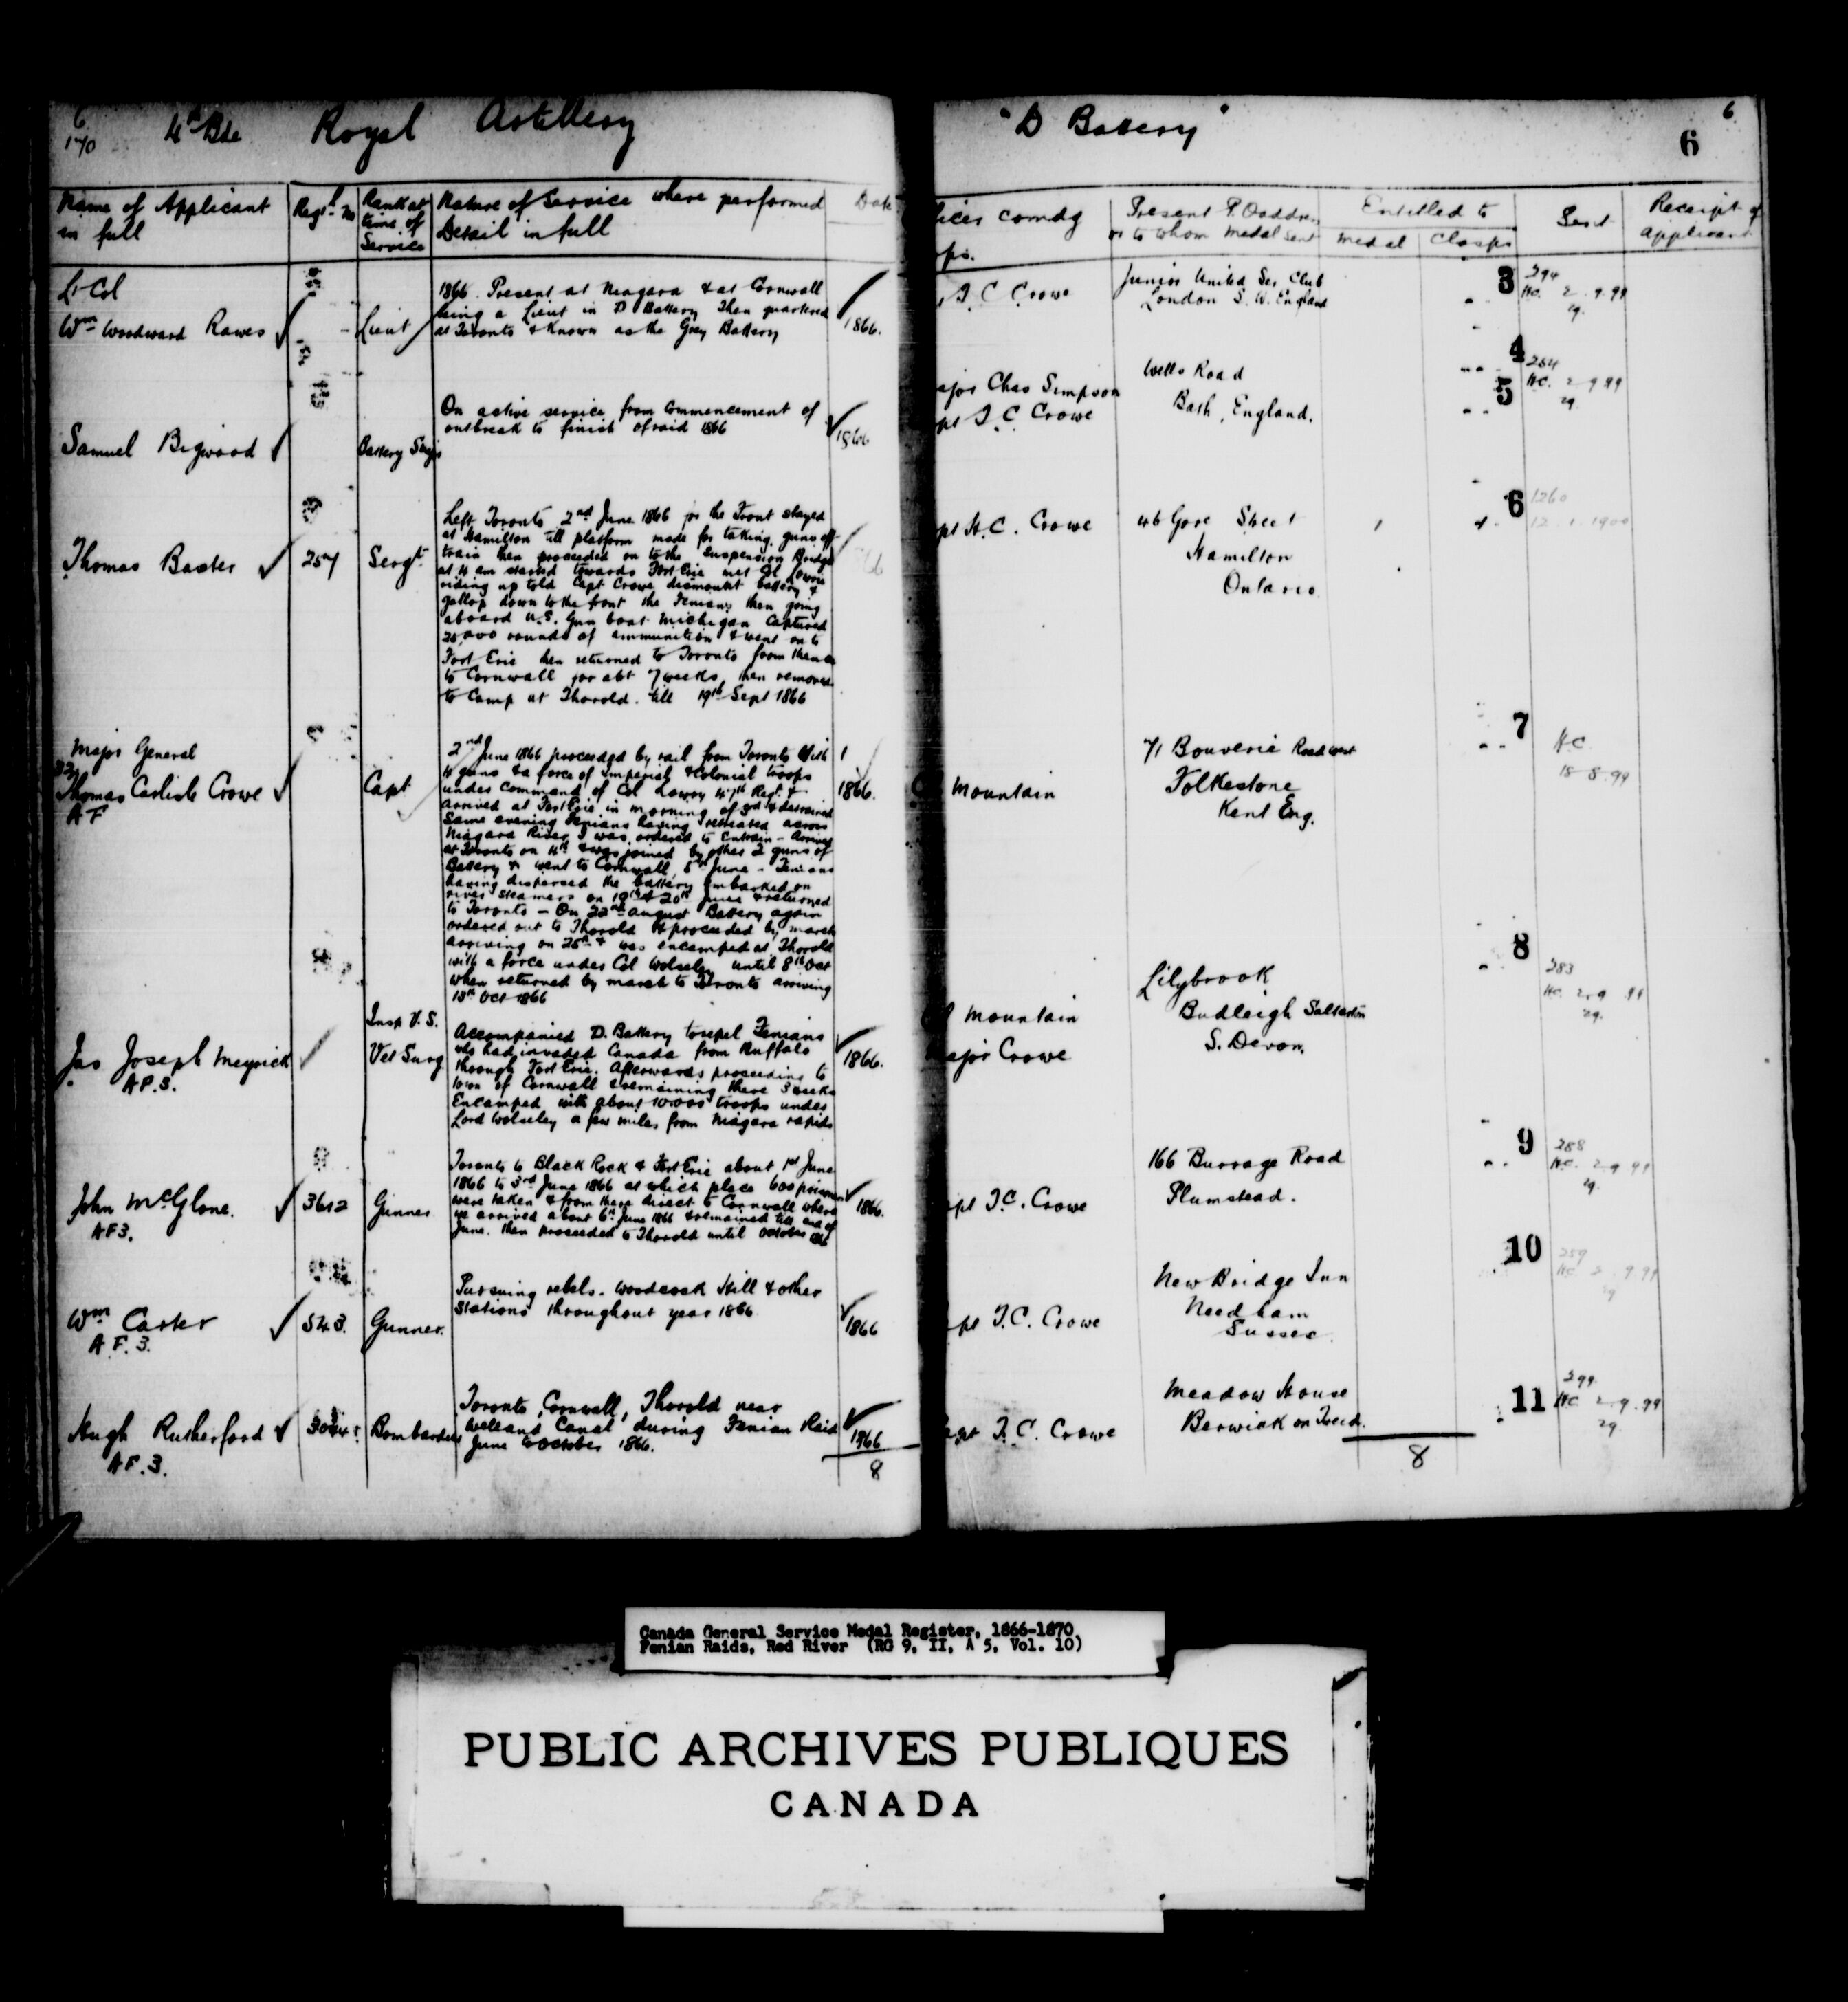 6
170
4th Bde Royal Artillery
Name of Applicant
in full
Regtl No
Rank at
time of
Service
Nature of Service where performed
Detail in full
Date
Lt Col
Wm Woodward Rawes
Lieut
1866. Present at Niagara & at Cornwall
being a Lieut in D Battery then quartered
at Toronto & known as the Grey Battery
1866.
Samuel Bigwood
Battery Sergt
On active service from commencement of
outbreak to finish of raid 1866
1866
Thomas Baxter
257
Sergt
Left Toronto 2nd June 1866 for the Front stayed
at Hamilton till platform made for taking guns off
train then proceeded on to the Suspension Bridge
at 4 am started towards Fort Erie met Col Lowrie
riding up told Capt Crowe dismount battery &
gallop down to the front the Fenians then going
aboard U.S. Gun boat Michigan Captured
20,000 rounds of ammunition & went on to
Fort Erie then returned to Toronto from thence
to Cornwall for abt 7 weeks, then removed
to Camp at Thorold till 19th Sept 1866
Major General
Thomas Carlisle Crowe
AF
Capt
2nd June 1866 proceeded by rail from Toronto with
4 guns & a force of Imperial & Colonial troops
under command of Col Lowry 47th Regt &
arrived at Fort Erie in morning of 3rd & detrained
Same evening Fenians having retreated across
Niagara River I was ordered to Entrain - Arrived
at Toronto on 4th & was joined by other 2 guns of
Battery & went to Cornwall, 5th June - Fenians
having dispersed the battery embarked on
river steamers on 19th & 20th June & returned
to Toronto - On 22nd August Battery again
ordered out to Thorold & proceeded by march
arriving on 25th & was encamped at Thorold
with a force under Col Wolseley until 8th Oct
when returned by march to Toronto arriving
13th Oct 1866
1866.
Jas Joseph Meyrick
AF.3.
Insp V.S.
Vet Surg
Accompanied D. Battery to repel Fenians
who had invaded Canada from Buffalo
through Fort Erie. Afterwards proceeding to
town of Cornwall & remaining there 3 weeks
Encamped with about 10.000 troops under
Lord Wolseley a few miles from Niagara rapids
1866.
John McGlone.
AF3.
3612
Gunner
Toronto to Black Rock & Fort Erie about 1st June
1866 to 3rd June 1866 at which place 600 prisoners
were taken & from there direct to Cornwall where
we arrived about 6th June 1866 & remained till end of
June. then proceeded to Thorold until October 1866
1866.
Wm Carter
A.F.3.
543.
Gunner.
Pursuing rebels. Woodcock Hill & other
Stations throughout year 1866
1866
Hugh Rutherford
AF.3.
Bombardier
Toronto, Cornwall, Thorold near
Welland Canal during Fenian Raid
June to October 1866.
1866
8
"D Battery"
6
6
ficer comdg
ps.
Present P.O address
or to whom medal sent
Entitled to
Medal
Clasps
Sent
Receipt of
applicant
T C Crowe
Junior United Ser Club
London S.W. England
3
294
HC. 2.9.99
29.
4
ajor Chas Simpson
pt T.C. Crowe
Wells Road
Bath, England.
5
284
HC. 2-9.99
29.
pt H.C. Crowe
46 Gore Street
Hamilton
Ontario
6
1260
12.1.1900
Mountain
71 Bouverie Road West
Folkestone
Kent Eng.
7
HC
18-8.99
Mountain
ajor Crowe
Lilybrook
Budleigh Salterton
S. Devon.
8
283
HC. 2.9.99
29.
pt T.C. Crowe
166 Burrage Road
Plumstead.
9
288
HC. 2-9.99
29.
pt T.C. Crowe
New Bridge Inn
Needham
Sussex
10
259
HC 2.9.99
29
apt T.C. Crowe
Meadow House
Berwick on Tweed.
11
299
HC 2.9.99
29
8
Canada General Service Medal Register, 1866-1870
Fenian Raids, Red River (RG 9, II, A 5, Vol. 10)
PUBLIC ARCHIVES PUBLIQUES
CANADA